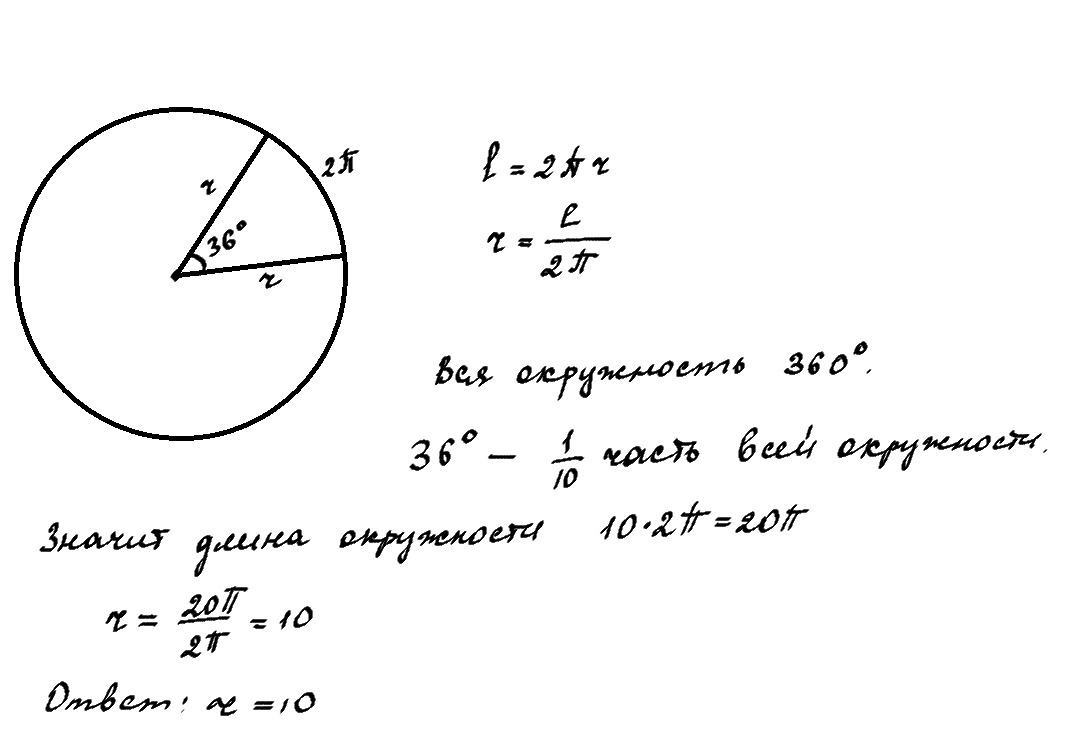 2π
r
36°
r
l = 2πr
r = l / 2π
Вся окружность 360°.
36° — 1/10 часть всей окружности.
Значит длина окружности 10·2π=20π
r = 20π / 2π = 10
Ответ: r = 10